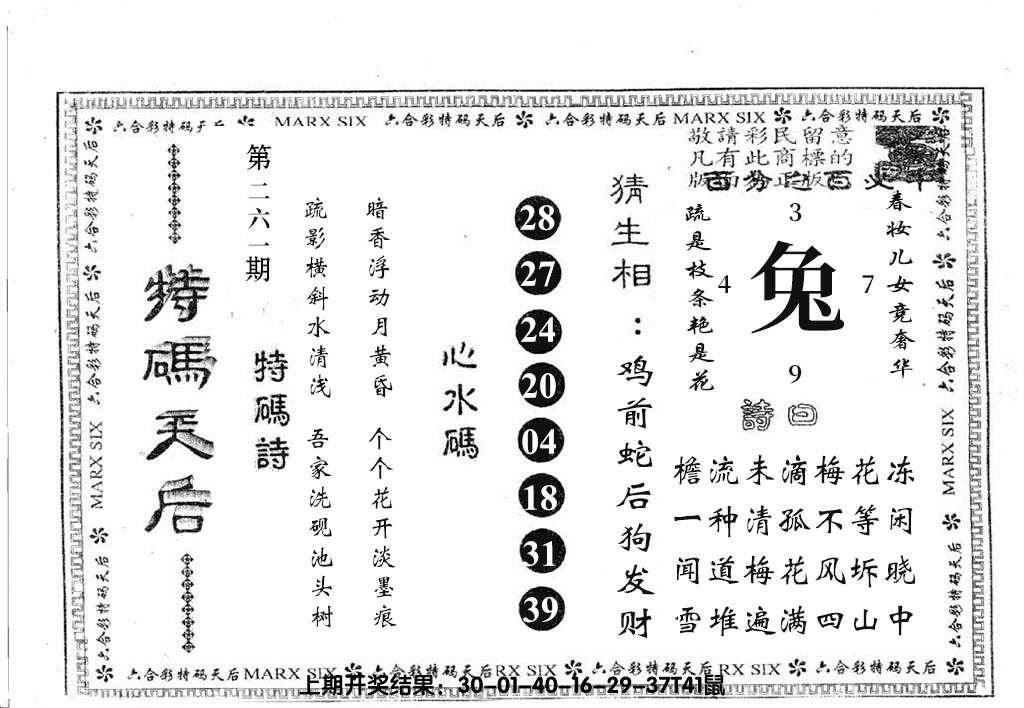 六合彩特码天后 MARX SIX 六合彩特码天后 六合彩特码天后 MARX SIX 六合彩特码天后
敬請彩民留意
凡有此商標的
版面為正版
春妆儿女竞奢华
疏是枝条艳是花
3
4
兔
7
9
詩曰
檐流未滴梅花冻
一种清孤不等闲
闻道梅花风坼晓
雪堆遍满四山中
猜生相：鸡前蛇后狗发财
28
27
24
20
04
18
31
39
心水碼
暗香浮动月黄昏 个个花开淡墨痕
疏影横斜水清浅 吾家洗砚池头树
特碼詩
第二六一期
特碼天后
六合彩特码天后
MARX SIX
六合彩特码天后
六合彩特码天后
六合彩特码天后
MARX SIX
六合彩特码天后
六合彩特码天后 MARX SIX 六合彩特码天后 RX SIX 六合彩特码天后 RX SIX 六合彩特码天后
上期开奖结果：30-01-40-16-29-37T41鼠